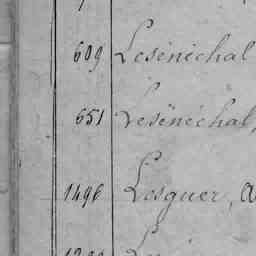 609 Lesénéchal
651 Lesénéchal,
1496 Lesguer, a